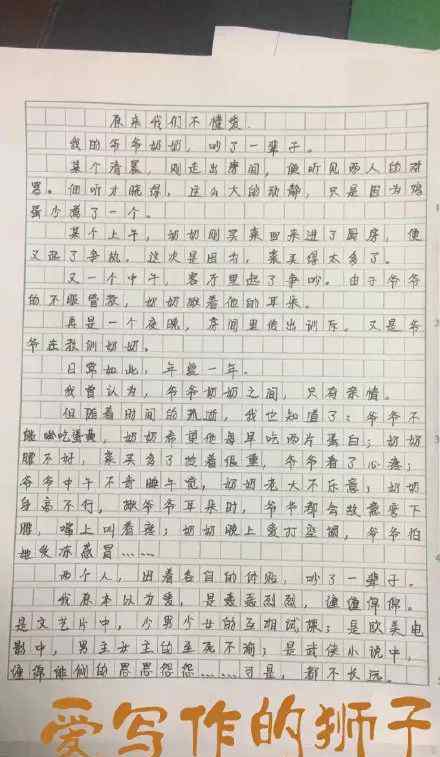 原来我们不懂爱
我的爷爷奶奶，吵了一辈子。
某个清晨，刚走出房间，便听见两人的对
骂。细听才晓得，这么大的动静，只是因为鸡
蛋少煮了一个。
某个上午，奶奶刚买菜回来进了厨房，便
又起了争执。这次是因为，菜买得太多了。
又一个中午，客厅里起了争吵。由于爷爷
的不服管教，奶奶揪着他的耳朵。
再是一个夜晚，房间里传出训斥。又是爷
爷在教训奶奶。
日常如此，年复一年。
我曾认为，爷爷奶奶之间，只有亲情。
但随着时间的流逝，我也知道了：爷爷不
能吃蛋黄，奶奶希望他每早吃两片蛋白；奶奶
腰不好，菜买多了拎着很重，爷爷看了心疼；
爷爷中午不肯睡午觉，奶奶老大不乐意；奶奶
身高不行，揪爷爷耳朵时，爷爷都会故意弯下
腰，嘴上叫着疼；奶奶晚上爱打空调，爷爷怕
她受冻感冒……
两个人，因着各自的体贴，吵了一辈子。
我原本以为爱，是轰轰烈烈，
是文艺片中，少男少女的互相试探；是欧美电
影中，男主女主的至死不渝；是武侠小说中，
侠侣的恩恩怨怨……可是，都不长远。
爱写作的狮子